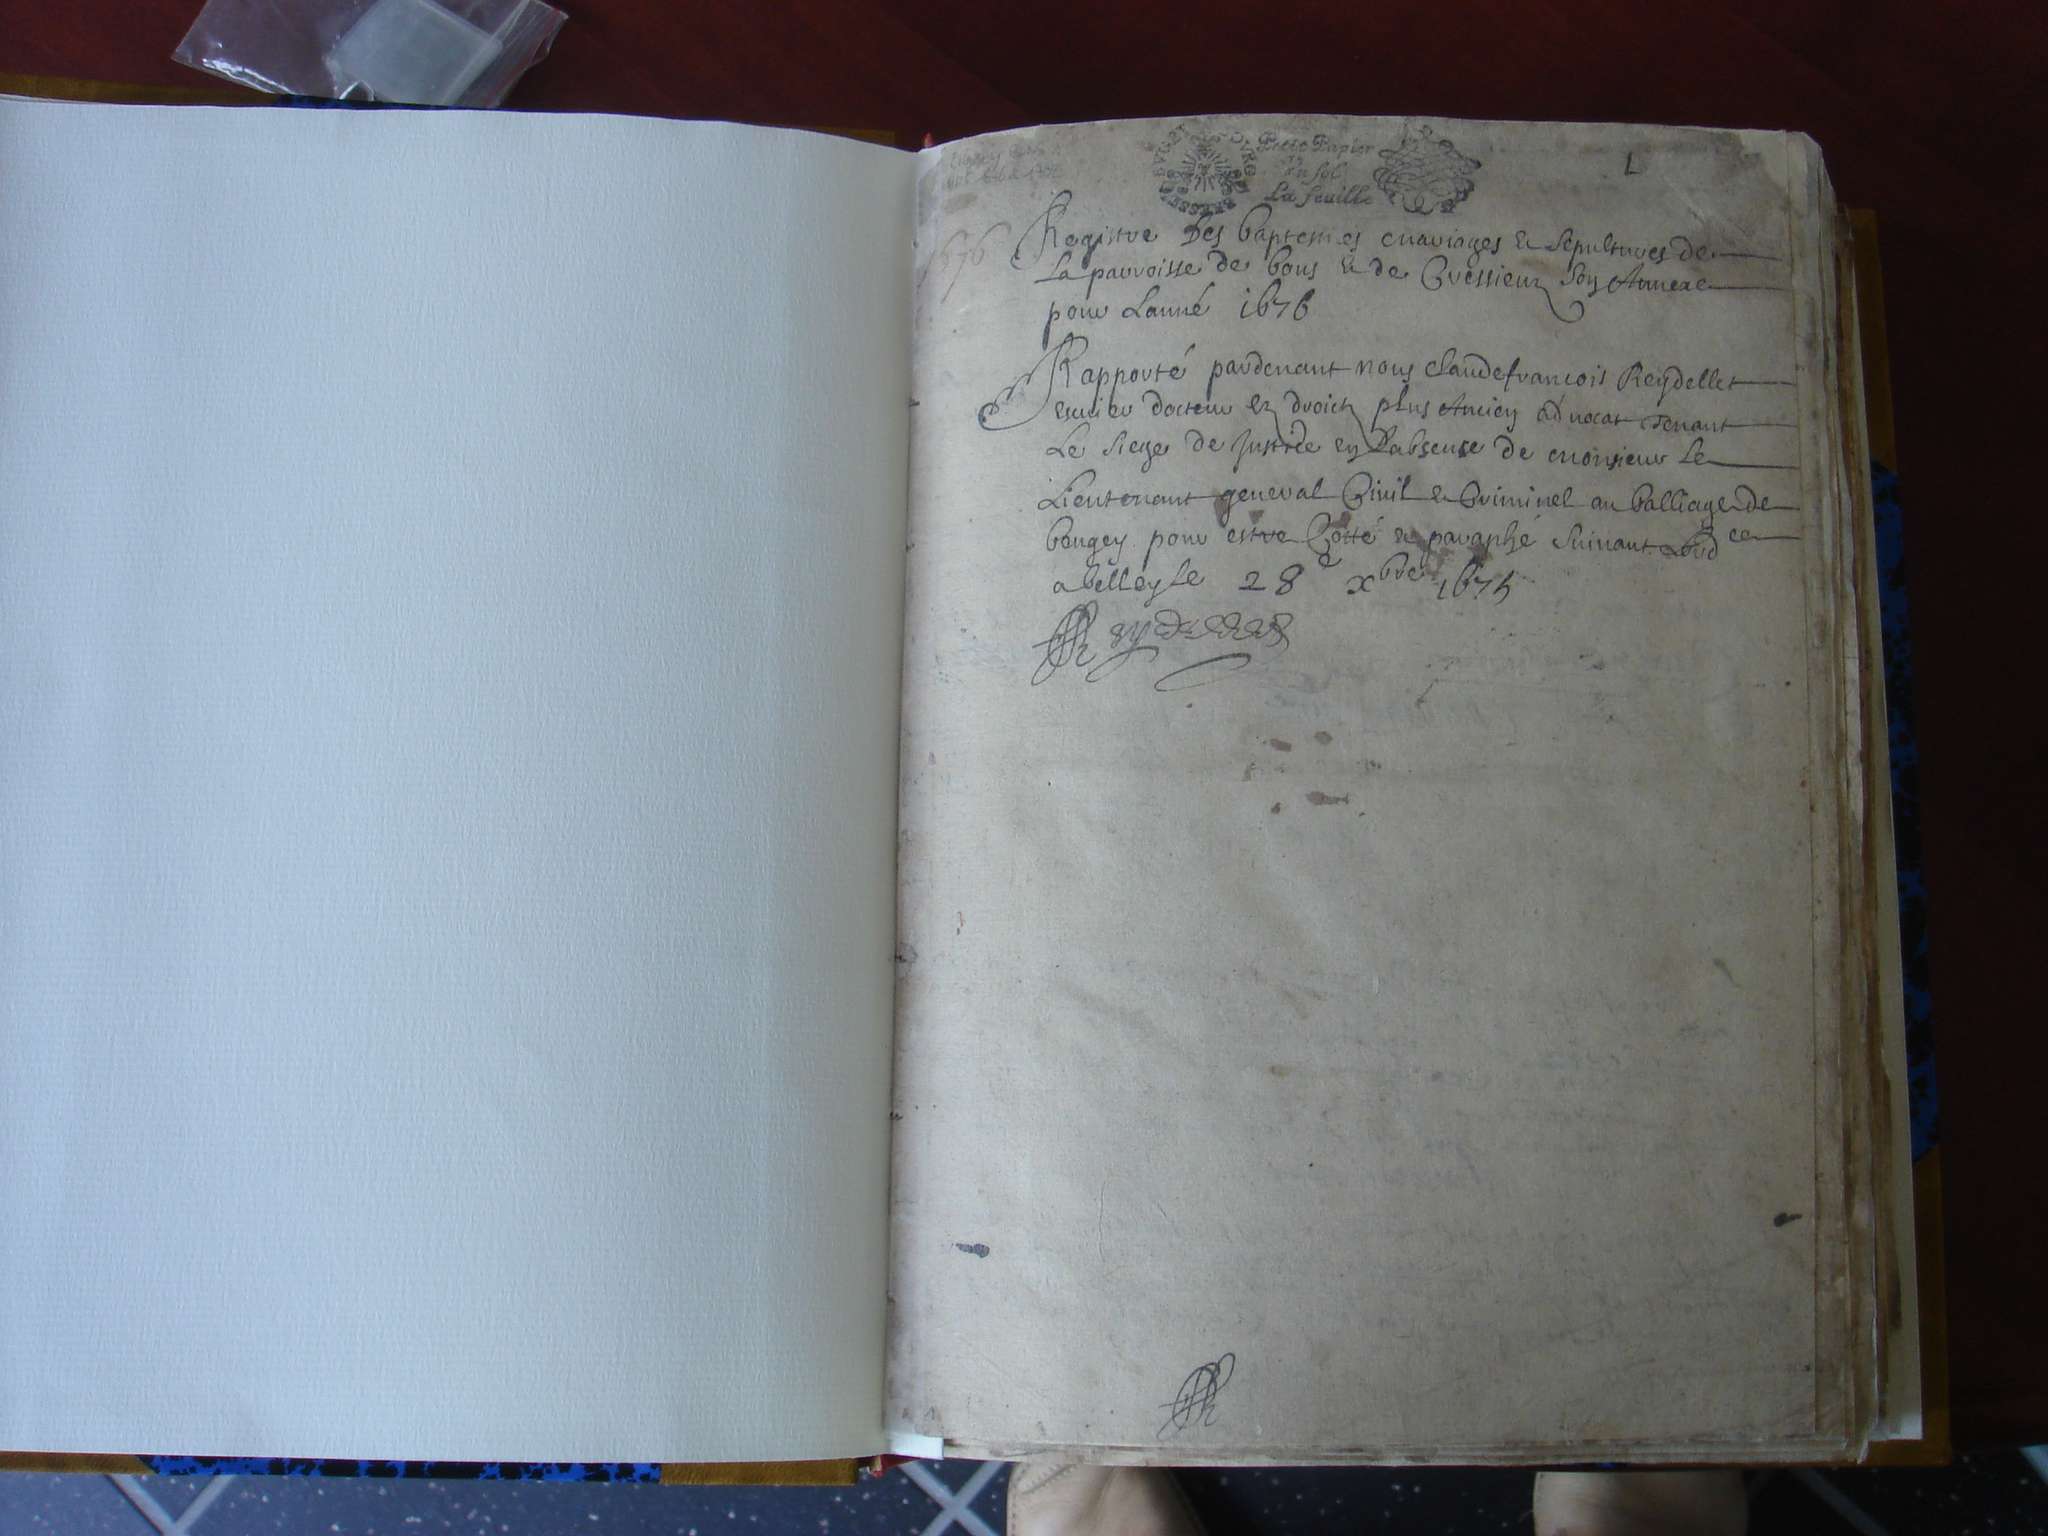 Petit Papier
un sol
La feuille
1
1676
Registre des baptesmes mariages & sepultures de
La parroisse de bons & de Cressieu son Annexe
pour Lanné 1676
Rapporté pardevant nous Claude francois Reydellet
escuier docteur en droict plus Ancien advocat tenant
Le siege de Justice en l'absence de monsieur Le
Lieutenant general Civil & Criminel au balliage de
bougey pour estre Cotté & paraphé suivant Lordce
a belley le 28e xbre 1675
Reydellet